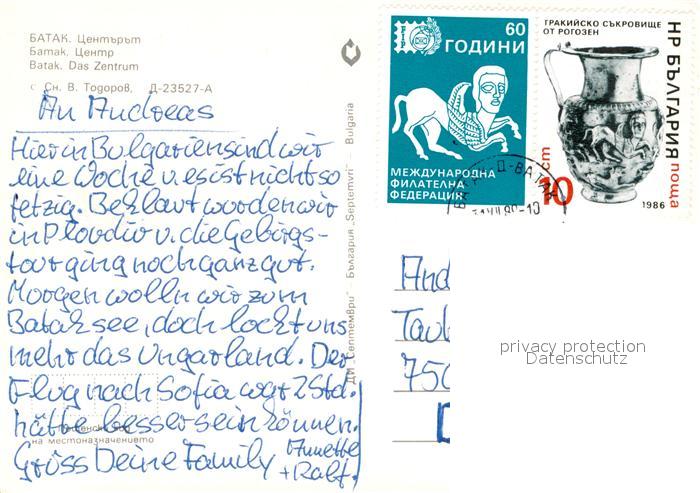 БАТАК. Центърът
Батак. Центр
Batak. Das Zentrum
Сн. В. Тодоров, Д-23527-А
An Andreas
Hier in Bulgarien sind wir
eine Woche u. es ist nicht so
fetzig. Beklaut wurden wir
in Plovdiv u. die Gebirgs-
tour ging noch ganz gut.
Morgen wolln wir zum
Bataksee, doch lockt uns
mehr das Ungarland. Der
Flug nach Sofia war 2 Std.
hätte besser sein können.
Grüss Deine Family Annette
+ Ralf.
на местоназначението
ДИ „Септември" · България „Septemvri" Bulgaria
60
ГОДИНИ
МЕЖДУНАРОДНА
ФИЛАТЕЛНА
ФЕДЕРАЦИЯ
ТРАКИЙСКО СЪКРОВИЩЕ
ОТ РОГОЗЕН
НР БЪЛГАРИЯ
поща
10 ст
1986
And
Tau
750
D
privacy protection
Datenschutz